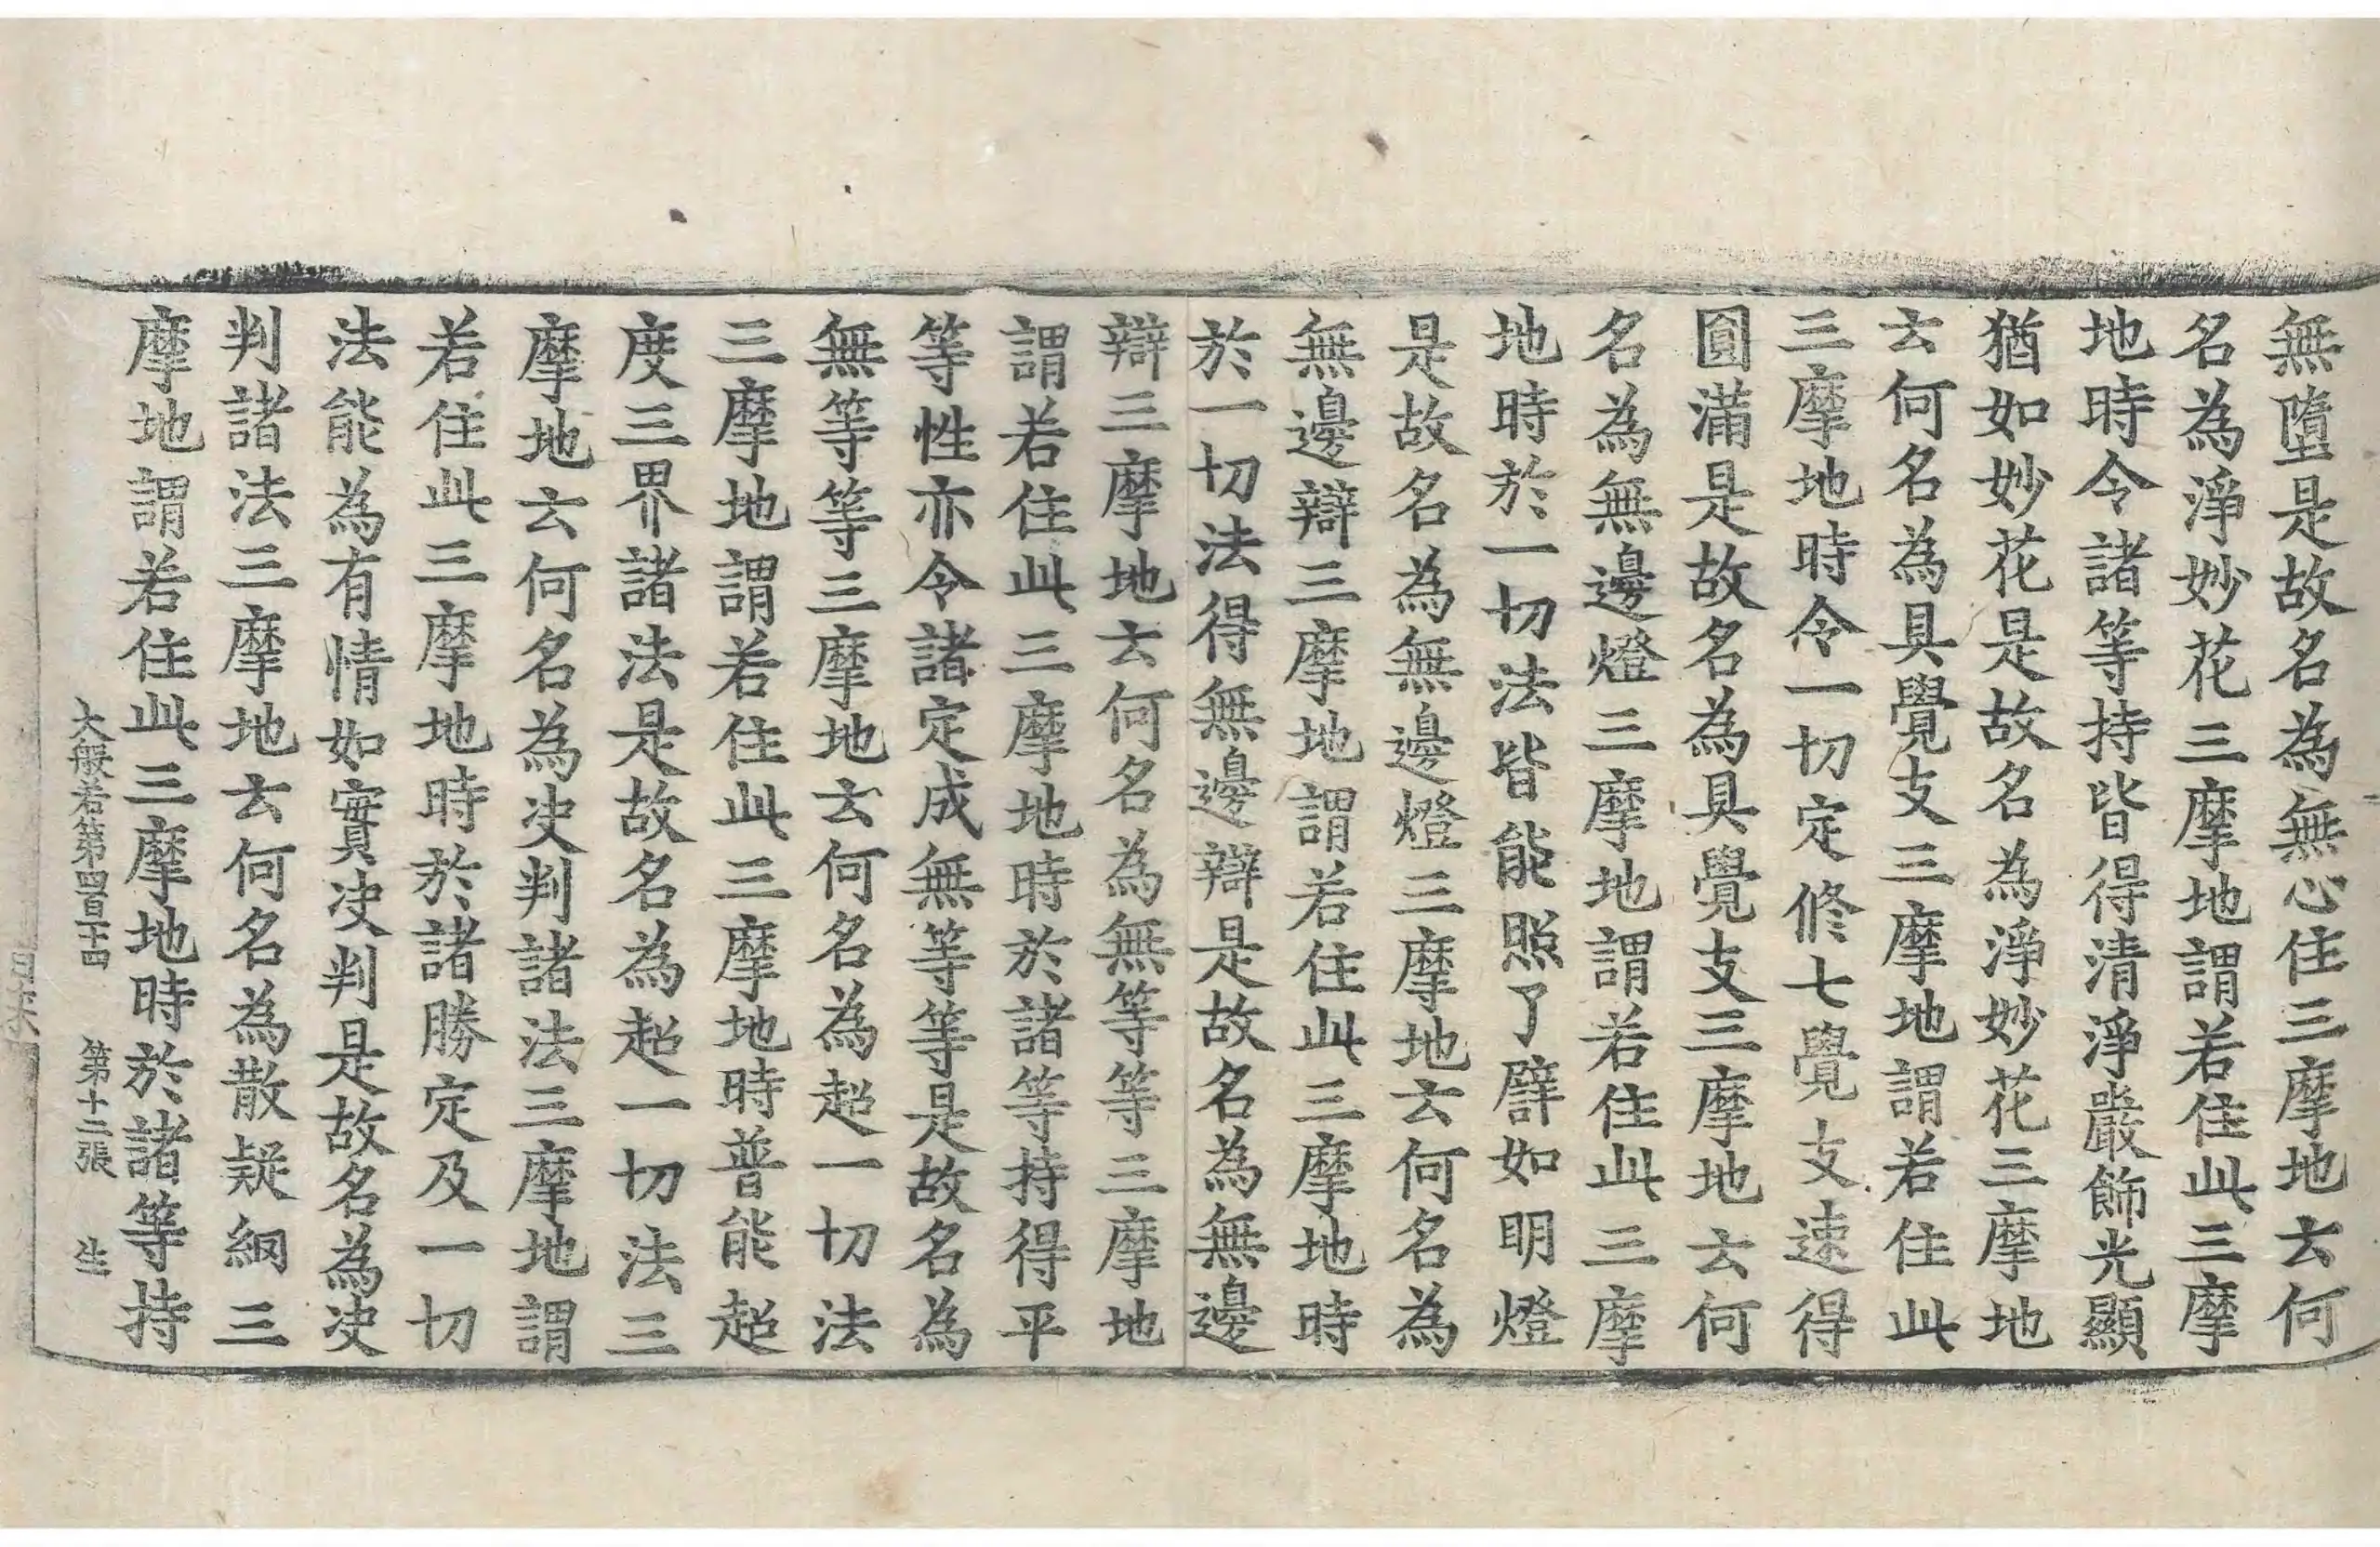 無墮是故名為無心住三摩地云何
名為淨妙花三摩地謂若住此三摩
地時令諸等持皆得清淨嚴飾光顯
猶如妙花是故名為淨妙花三摩地
云何名為具覺支三摩地謂若住此
三摩地時令一切定修七覺支速得
圓滿是故名為具覺支三摩地云何
名為無邊燈三摩地謂若住此三摩
地時於一切法皆能照了譬如明燈
是故名為無邊燈三摩地云何名為
無邊辯三摩地謂若住此三摩地時
於一切法得無邊辯是故名為無邊
辯三摩地云何名為無等等三摩地
謂若住此三摩地時於諸等持得平
等性亦令諸定成無等等是故名為
無等等三摩地云何名為超一切法
三摩地謂若住此三摩地時普能超
度三界諸法是故名為超一切法三
摩地云何名為决判諸法三摩地謂
若住此三摩地時於諸勝定及一切
法能為有情如實决判是故名為决
判諸法三摩地云何名為散疑網三
摩地謂若住此三摩地時於諸等持
大般若第四百十四 第十二張